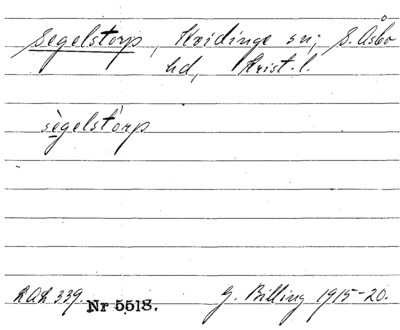 Segelstorp, Kvidinge sn; S. Åsbo
hd, Krist. l.
sègelstòrp
Nr 5518.
G. Billing 1915-20.